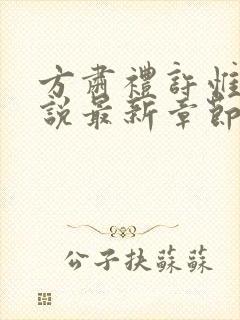 方肅禮許惟
說最新章節
公子扶蘇蘇